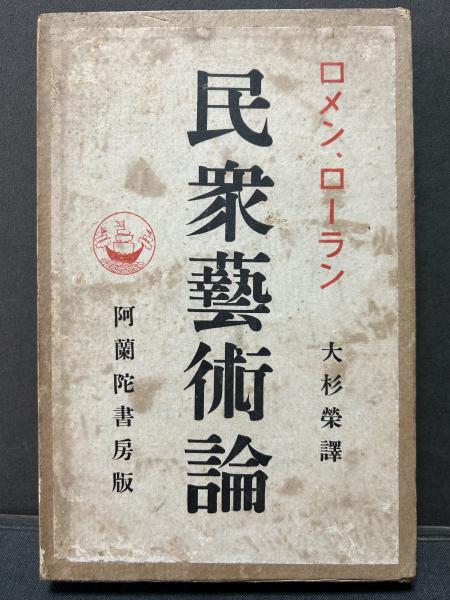 ロメン、ローラン
大杉榮譯
民衆藝術論
阿蘭陀書房版